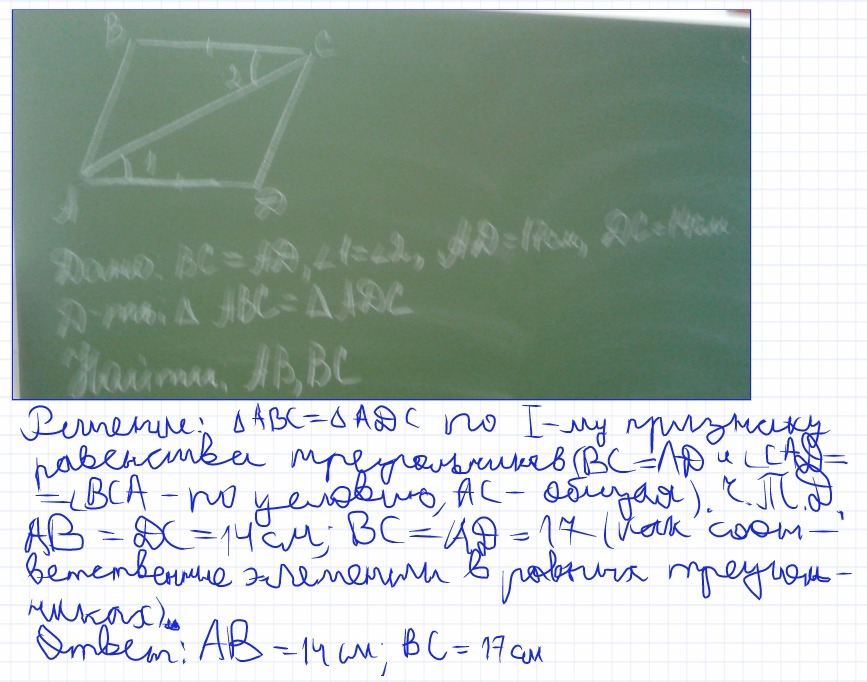 B C
2
1
A D
Дано: BC = AD, ∠1=∠2, AD=17см, DC=14см
Д-ть: Δ ABC = Δ ADC
Найти: AB, BC
Решение: ΔABC=ΔADC по I-му признаку
равенства треугольников (BC=AD и ∠CAD=
=∠BCA - по условию, AC - общая). Ч.Т.Д.
AB = DC = 14 см; BC = AD = 17 (как соот-
ветственные элементы в равных треуголь-
никах).
Ответ: AB = 14 см; BC = 17 см